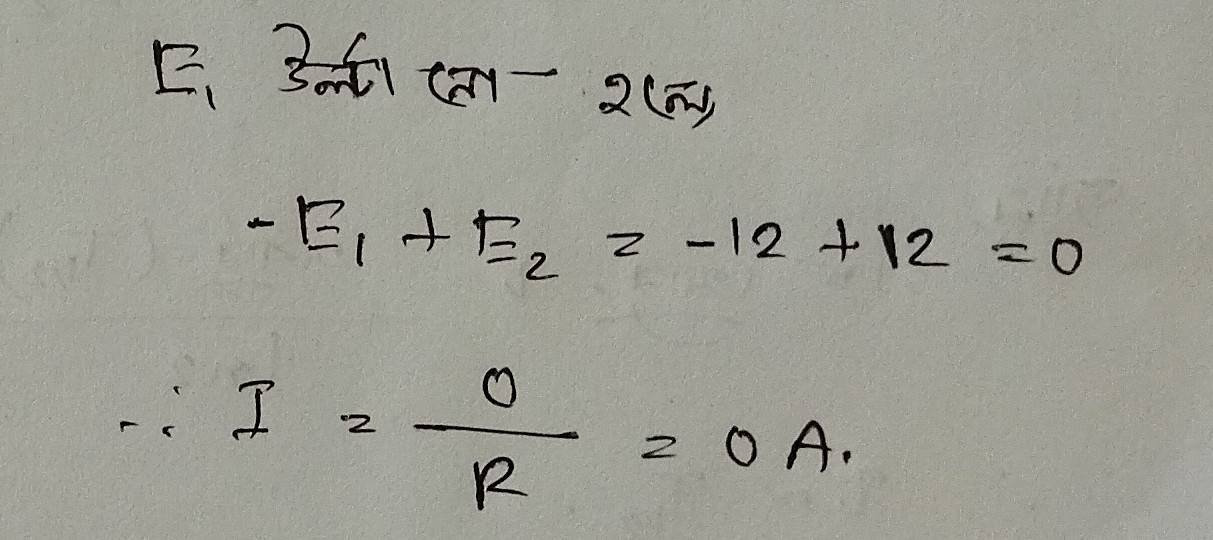 E₁ উল্টা নো হলে,
-E₁ + E₂ = -12 + 12 = 0
∴ I = 0/R = 0 A.